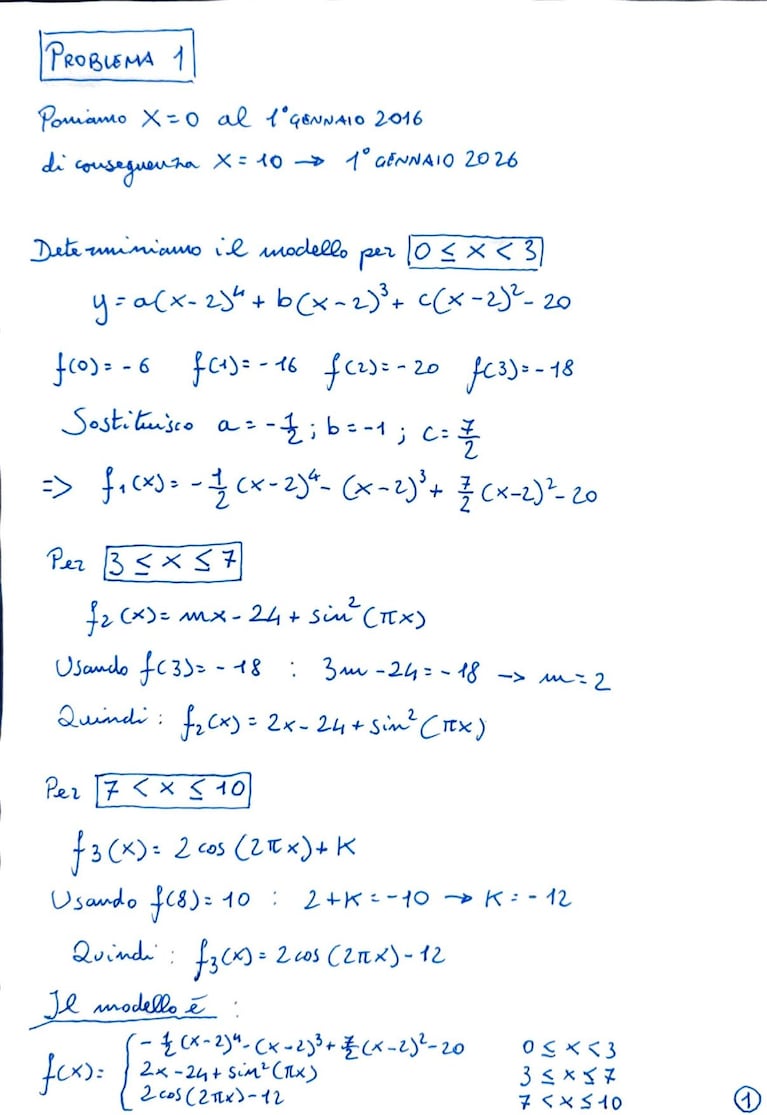 PROBLEMA 1
Poniamo X=0 al 1° GENNAIO 2016
di conseguenza X=10 → 1° GENNAIO 2026
Determiniamo il modello per 0 ≤ x < 3
y = a(x-2)⁴ + b(x-2)³ + c(x-2)² - 20
f(0) = -6 f(1) = -16 f(2) = -20 f(3) = -18
Sostituisco a = -1/2 ; b = -1 ; c = 7/2
=> f₁(x) = -1/2 (x-2)⁴ - (x-2)³ + 7/2 (x-2)² - 20
Per 3 ≤ x ≤ 7
f₂(x) = mx - 24 + sin²(πx)
Usando f(3) = -18 : 3m - 24 = -18 → m = 2
Quindi : f₂(x) = 2x - 24 + sin²(πx)
Per 7 < x ≤ 10
f3(x) = 2 cos (2πx) + K
Usando f(8) = 10 : 2 + K = -10 → K = -12
Quindi : f₃(x) = 2 cos (2πx) - 12
Il modello è :
- 1/2 (x-2)⁴ - (x-2)³ + 7/2 (x-2)² - 20 0 ≤ x < 3
f(x) = { 2x - 24 + sin²(πx) 3 ≤ x ≤ 7
2 cos (2πx) - 12 7 < x ≤ 10
1